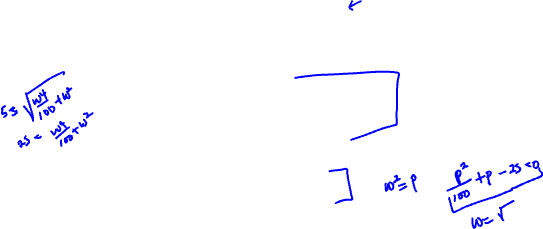 5 = √(w⁴/100 + w²)
25 = w⁴/100 + w²
w² = p
p²/100 + p - 25 = 0
w = √